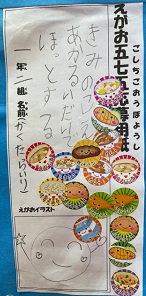 えがお五七五応募用紙
ごしちごおうぼようし
きみのこえ
あかるいだけで
ほっとする
一年二組 名前(かくたらいり)
えがおイラスト